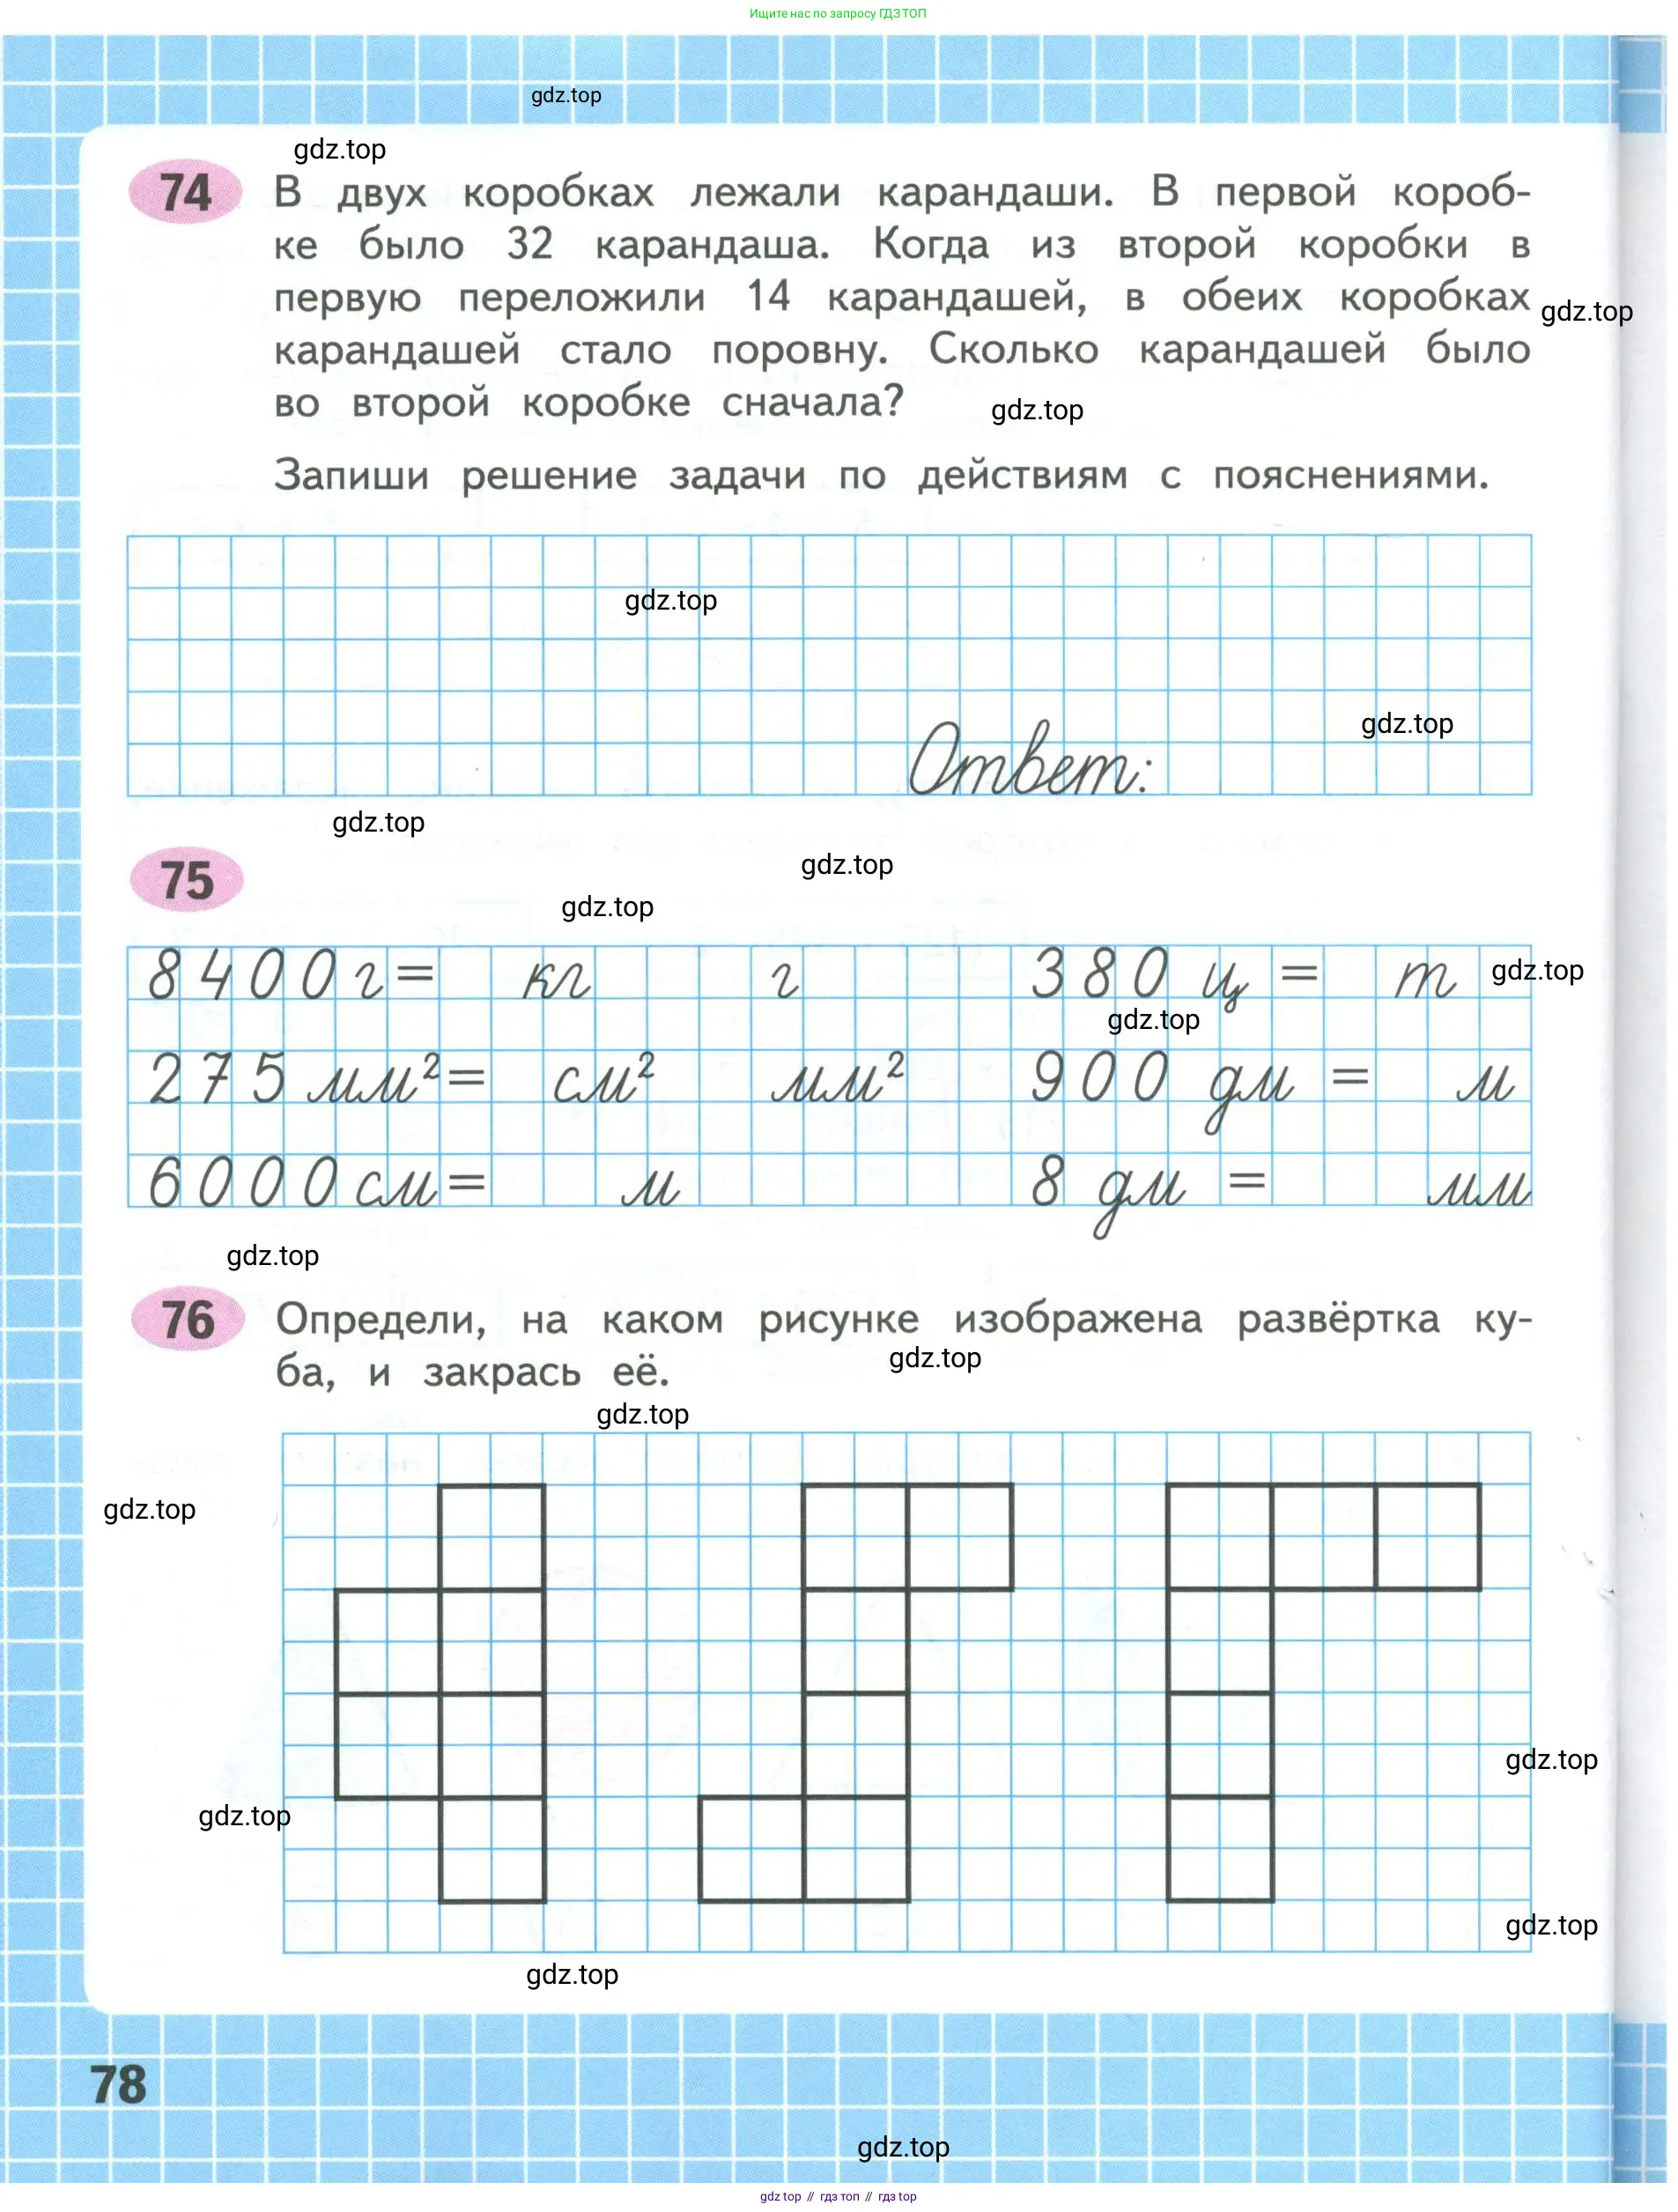 Ищите нас по запросу ГДЗ ТОП
gdz.top
gdz.top
74 В двух коробках лежали карандаши. В первой короб-
ке было 32 карандаша. Когда из второй коробки в
первую переложили 14 карандашей, в обеих коробках
gdz.top
карандашей стало поровну. Сколько карандашей было
во второй коробке сначала?
gdz.top
Запиши решение задачи по действиям с пояснениями.
gdz.top
gdz.top
Ответ:
gdz.top
75
gdz.top
gdz.top
8400 г = кг г 380 ц = т
gdz.top
gdz.top
275 мм² = см² мм² 900 дм = м
6000 см = м 8 дм = мм
gdz.top
76 Определи, на каком рисунке изображена развёртка ку-
ба, и закрась её.
gdz.top
gdz.top
gdz.top
gdz.top
gdz.top
gdz.top
gdz.top
78
gdz.top
gdz top // гдз топ // гдз top